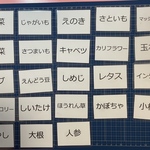 菜
じゃがいも
えのき
さといも
マッ
菜
さつまいも
キャベツ
カリフラワー
玉ネ
ブ
えんどう豆
しめじ
レタス
イン
ロリー
しいたけ
ほうれん草
かぼちゃ
小松
やし
大根
人参